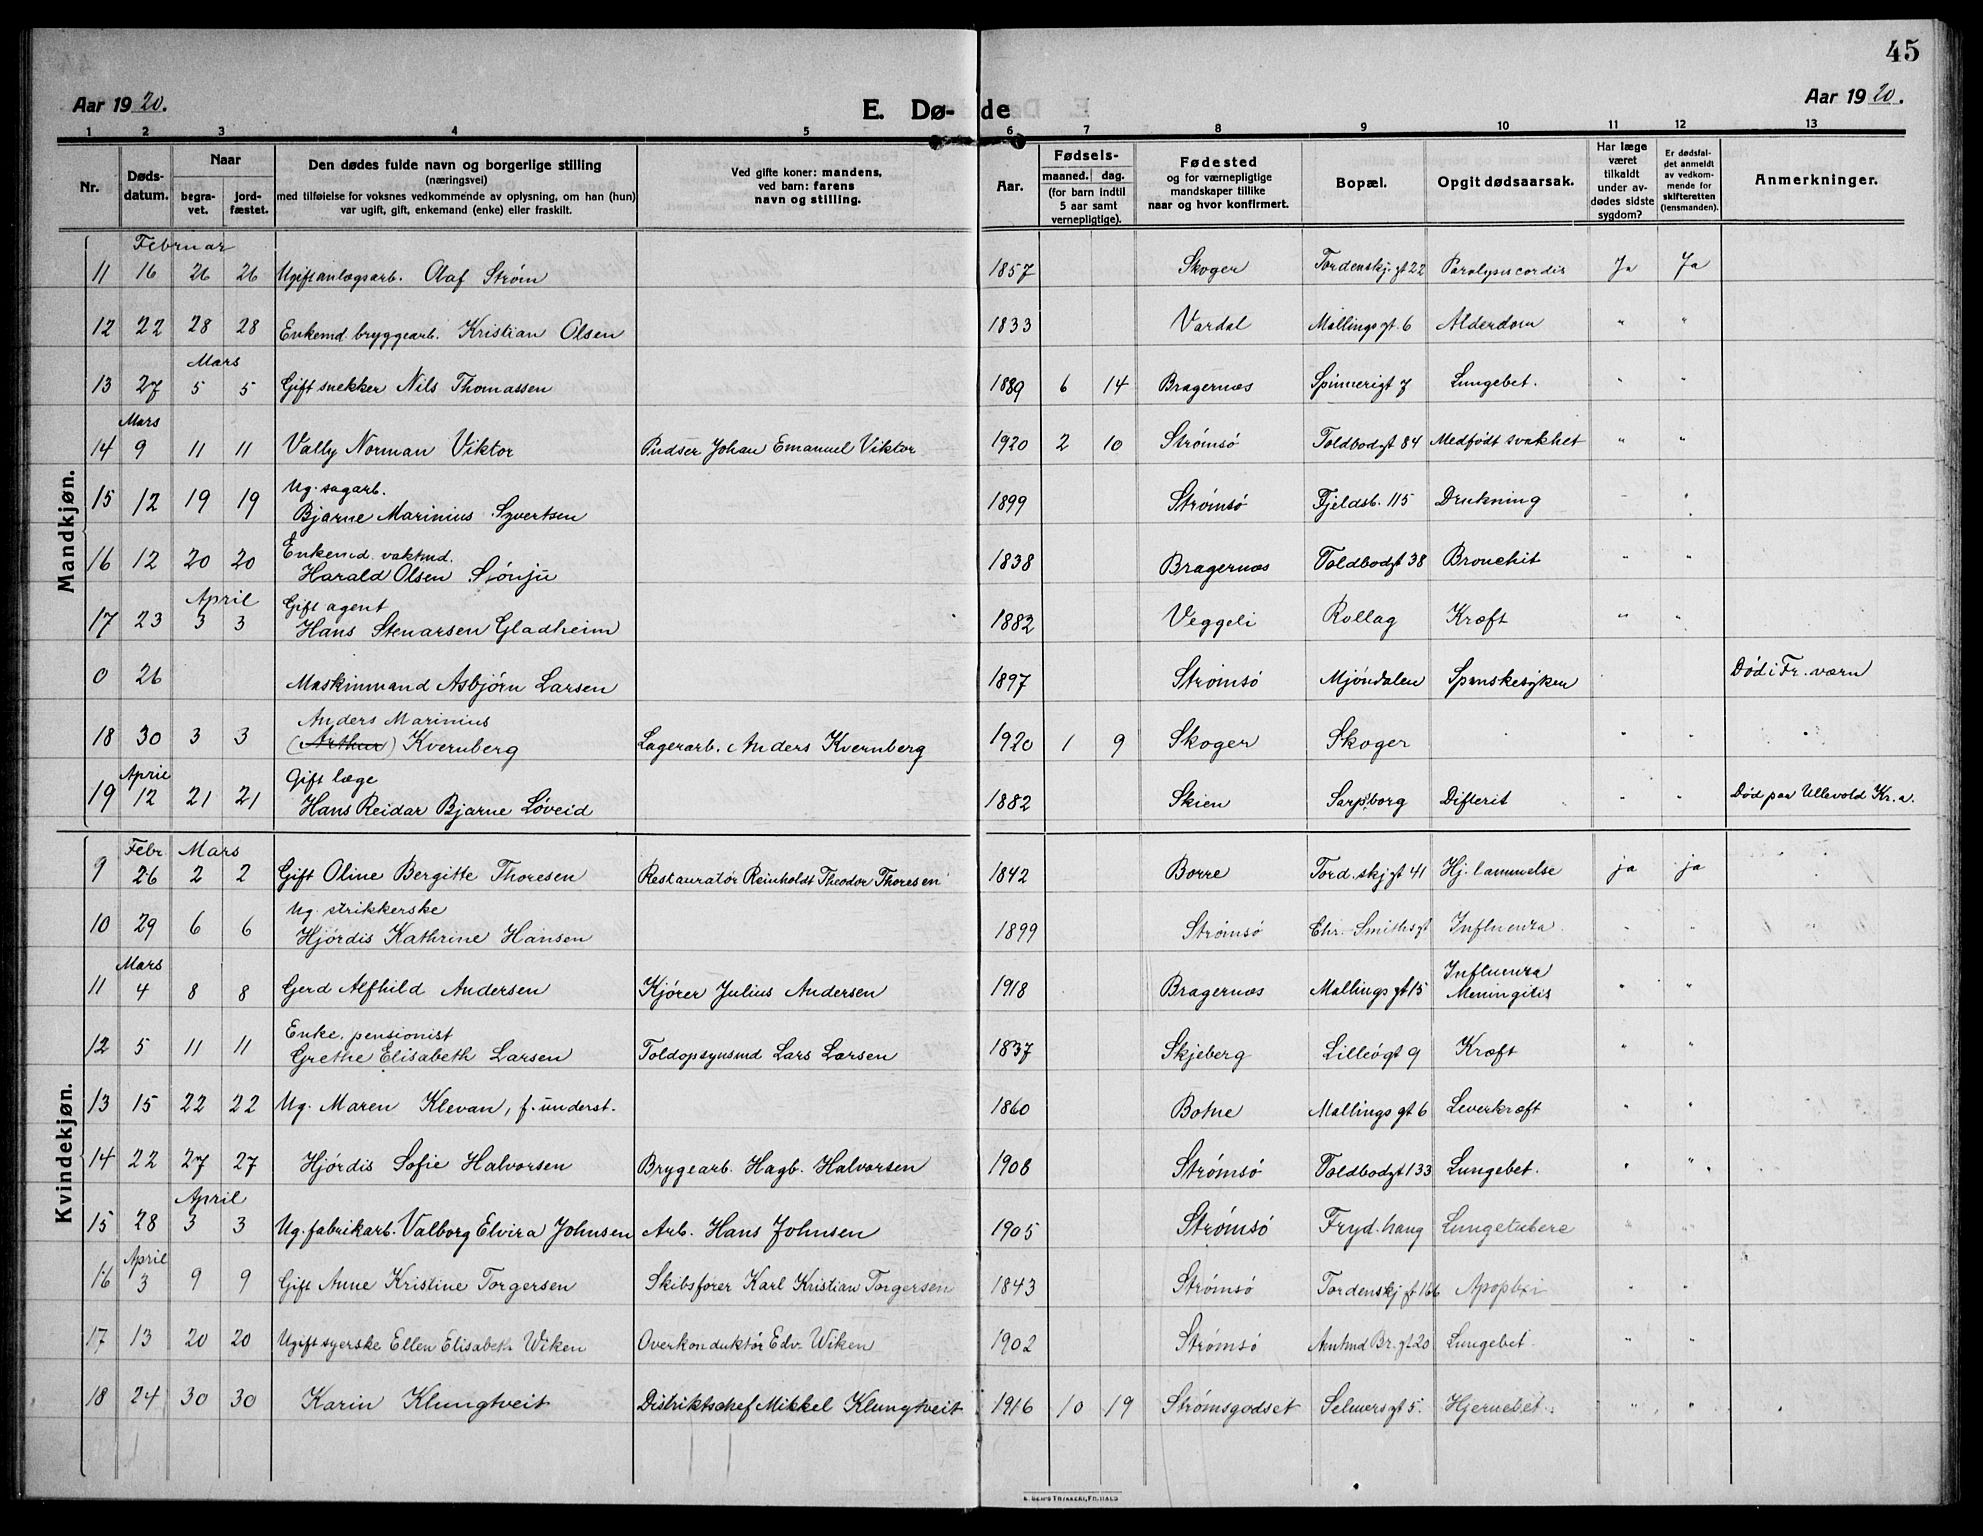 45
Aar 1920.
E. Dø- de
Aar 1920.
1 2 3 4 5 6 7 8 9 10 11 12 13
Nr.
Døds-
datum.
Naar
begra-
vet.
jord-
fæstet.
Den dødes fulde navn og borgerlige stilling
(næringsvei)
med tilføielse for voksnes vedkommende av oplysning, om han (hun)
var ugift, gift, enkemand (enke) eller fraskilt.
Ved gifte koner: mandens,
ved barn: farens
navn og stilling.
Aar.
Fødsels-
maaned. dag.
(for barn indtil
5 aar samt
vernepligtige).
Fødested
og for værnepligtige
mandskaper tillike
naar og hvor konfirmert.
Bopæl.
Opgit dødsaarsak.
Har læge
været
tilkaldt
under av-
dødes sidste
sygdom?
Er dødsfal-
det anmeldt
av vedkom-
mende for
skifteretten
(lensmanden).
Anmerkninger.
Mandkjøn.
Februar
11 16 26 26 Ugift anlægsarb. Olaf Strøm 1857 Skoger Tordenskj. gt 22 Paralysis cordis Ja Ja
12 22 28 28 Enkemd. bryggearb. Kristian Olsen 1833 Vardal Mallings gt. 6 Alderdom " "
Mars
13 27 5 5 Gift snekker Nils Thomassen 1889 6 14 Bragernæs Spinnerigt 7 Lungebet. " "
Mars
14 9 11 11 Vally Norman Viktor Pudser Johan Emanuel Viktor 1920 2 10 Strømsø Toldbodgt 84 Medfødt svakhet " "
Ug. sagarb.
15 12 19 19 Bjarne Marinius Syvertsen 1899 Strømsø Fjeldsb. 115 Drukning - "
Enkemd. vaktmd.
16 12 20 20 Harald Olsen Sjönju 1838 Bragernæs Toldbodgt 38 Bronchit " "
April Gift agent
17 23 3 3 Hans Stenarsen Gladheim 1882 Veggeli Rollag Kræft " "
0 26 Maskinmand Asbjørn Larsen 1897 Strømsø Mjöndalen Spanskesyken Död i Fr. værn
Anders Marinius
18 30 3 3 (Arthur) Kvernberg Lagerarb. Anders Kvernberg 1920 1 9 Skoger Skoger " " "
April Gift læge
19 12 21 21 Hans Reidar Bjarne Løveid 1882 Skien Sarpsborg Difterit " " Død paa Ullevold Kr.a.
Kvindekjøn.
Febr Mars
9 26 2 2 Gift Oline Bergitte Thoresen Restauratør Reinholdt Theodor Thoresen 1842 Borre Tord. skj gt 41 Hj. lammelse ja ja
Ug. strikkerske
10 29 6 6 Hjördis Kathrine Hansen 1899 Strömsö Chr. Smiths gt Influenza " "
Mars Influenza
11 4 8 8 Gerd Alfhild Andersen Kjører Julius Andersen 1918 Bragernæs Mallings gt 15 Meningitis " "
Enke, pensionist
12 5 11 11 Grethe Elisabeth Larsen Toldopsynsmd Lars Larsen 1837 Skjeberg Lilleögt 9 Kræft " "
13 15 22 22 Ug. Maren Klevan, f. underst. 1860 Botne Mallings gt 6 Leverkræft " "
14 22 27 27 Hjördis Sofie Halvorsen Brygearb. Hagb. Halvorsen 1908 Strømsø Toldbodgt 133 Lungebet. " "
April
15 28 3 3 Ug. fabrikarb. Valborg Elvira Johnsen Arb. Hans Johnsen 1905 Strømsø Fryd. haug Lungetubere " "
April
16 3 9 9 Gift Anne Kristine Torgersen Skibsfører Karl Kristian Torgersen 1843 Strømsø Tordenskj gt Apoplexi " "
17 13 20 20 Ugift syerske Ellen Elisabeth Wiken Overkonduktør Edv. Wiken 1902 Strømsø Amtmd Br. gt 20 Lungebet. " "
18 24 30 30 Karin Klungtveit Distriktschef Mikkel Klungtveit 1916 10 19 Strømsgodset Selmers gt 5. Hjernebet. " "